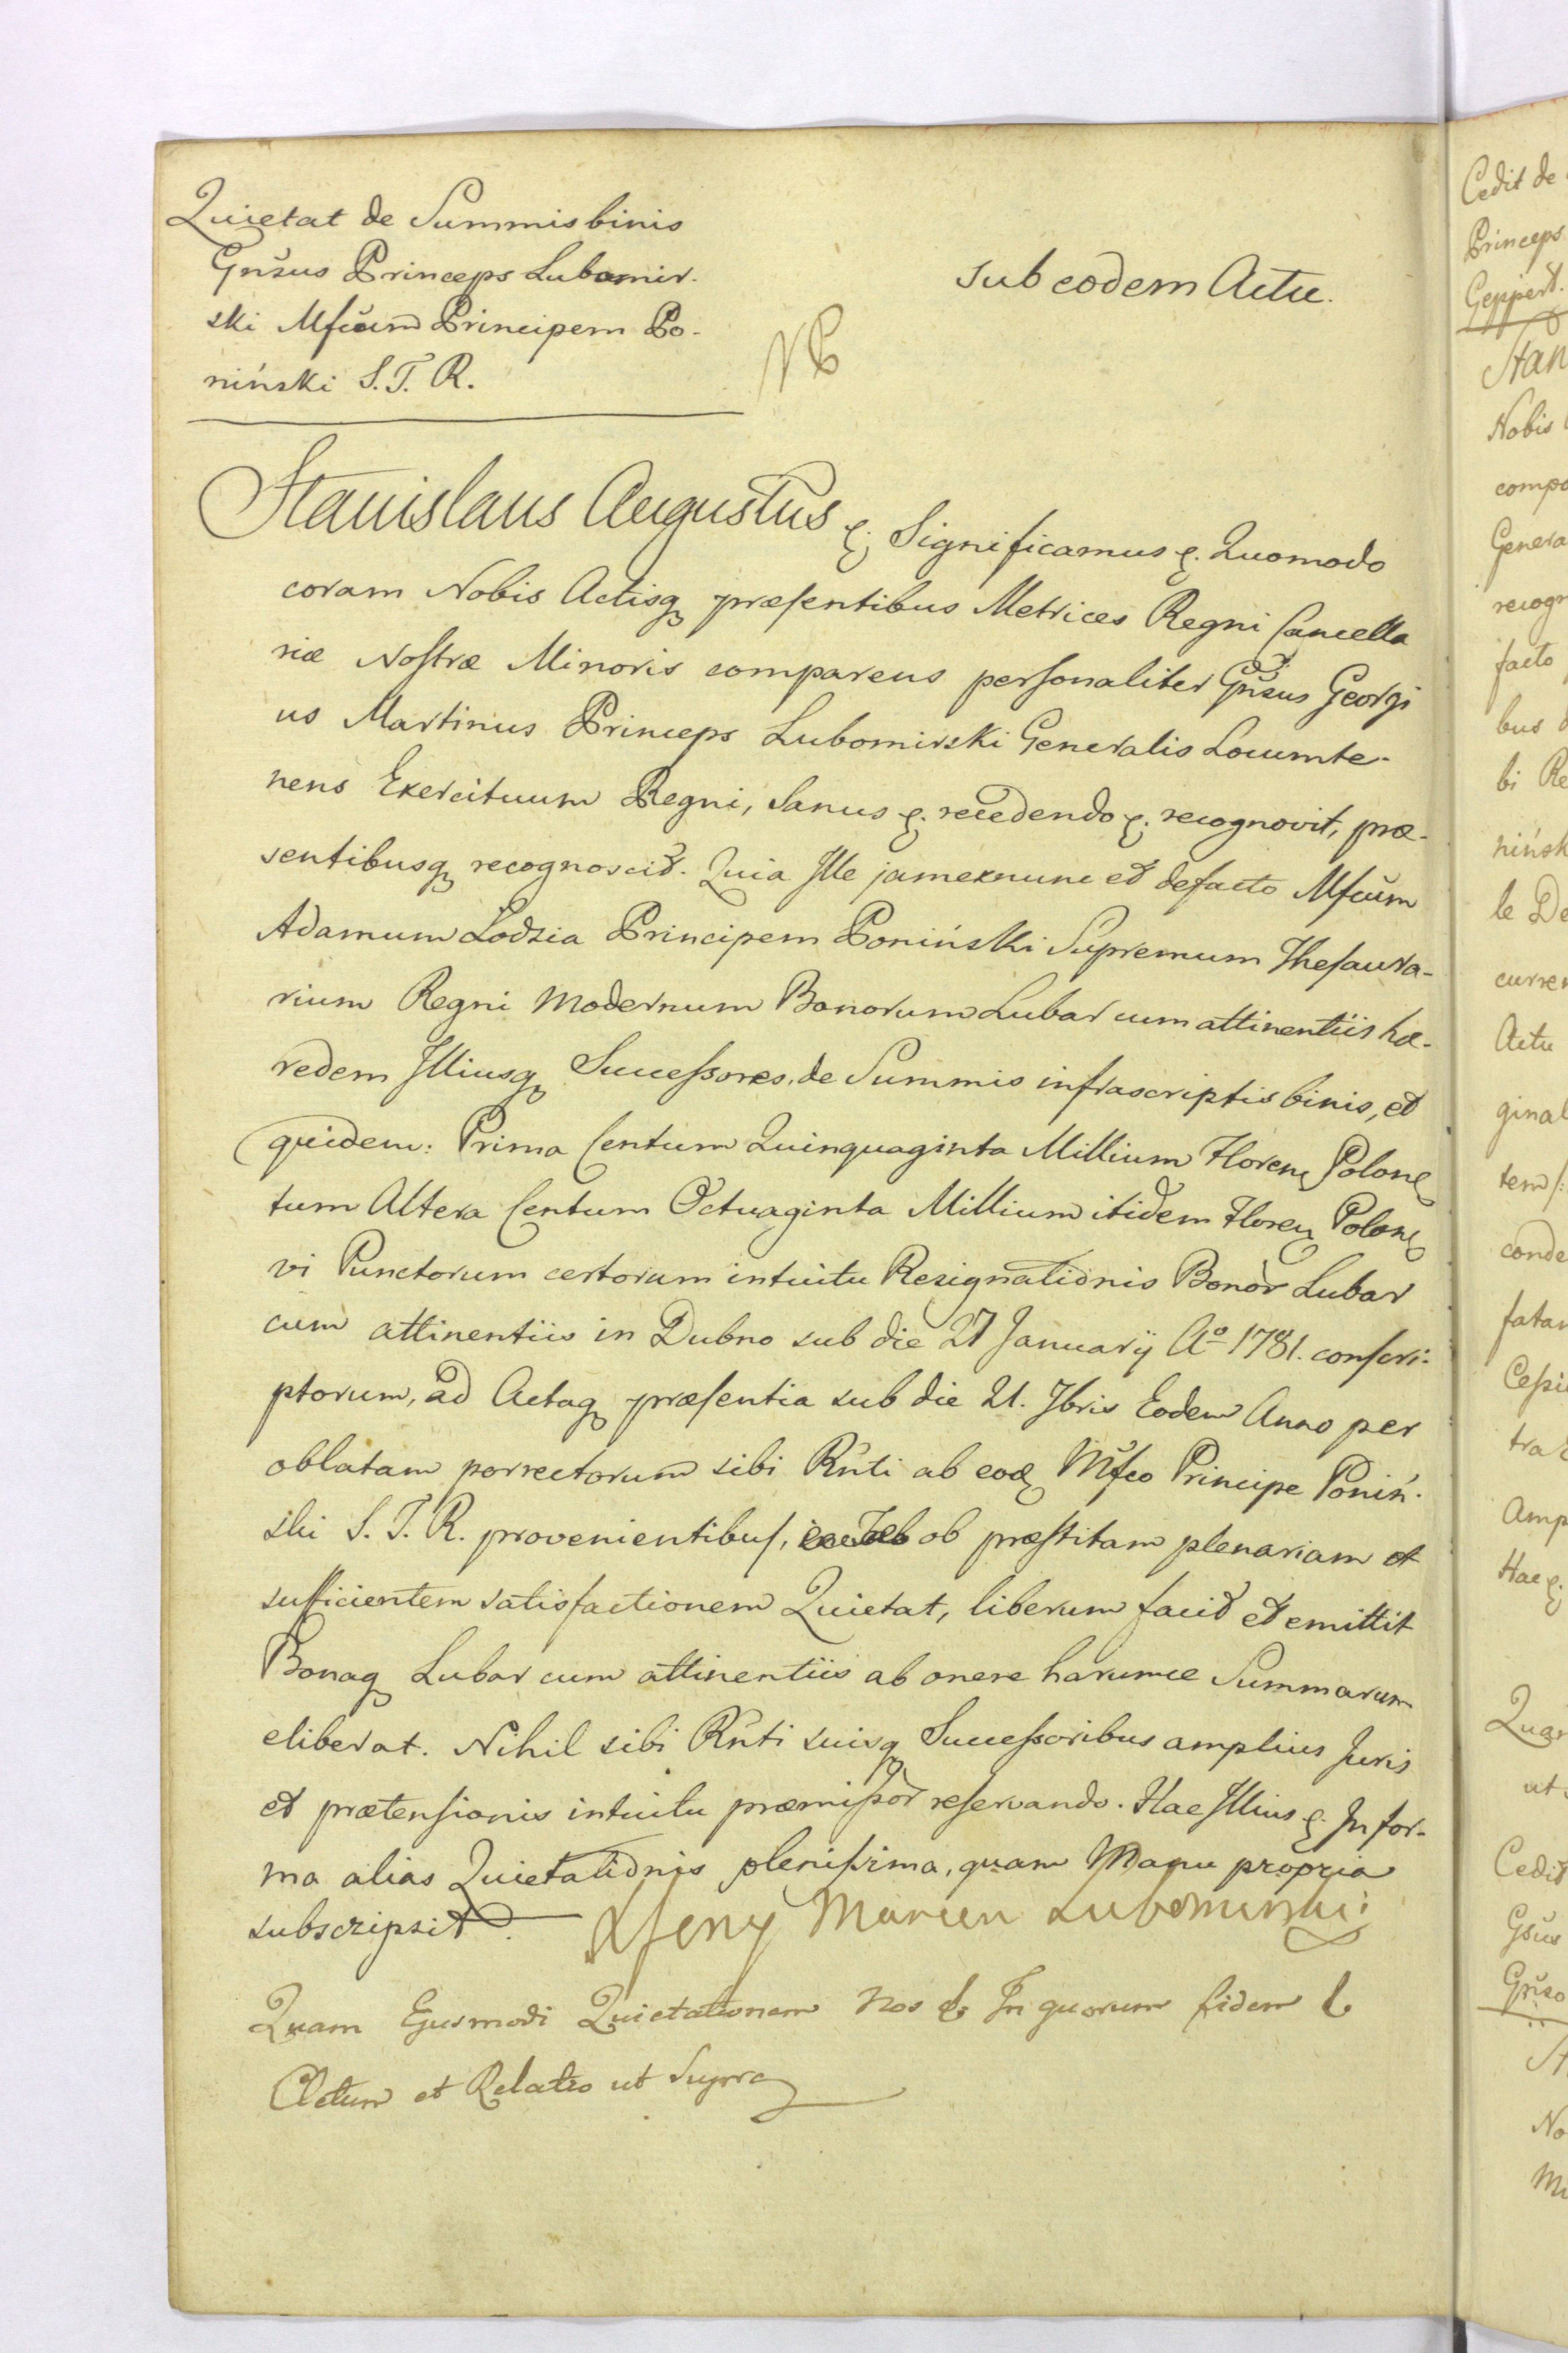 Quietat de Summis binis
Gnsus Princeps Lubomir-
ski Mfcum Principem Po-
niński S. T. R.
sub eodem Actu.
NB
Stanislaus Augustus &. Significamus &. Quomodo
coram Nobis Actisq præsentibus Metrices Regni Cancella
riæ Nostræ Minoris comparens personaliter Gnsus Georgi
us Martinus Princeps Lubomirski Generalis Locumte-
nens Exercituum Regni, Sanus &. recedendo &. recognovit, præ-
sentibusq recognoscit. Quia Ille jamexnunc et defacto Mfcum
Adamum Lodzia Principem Poniński Supremum Thesaura-
rium Regni Modernum Bonorum Lubar cum attinentiis hæ-
redem Illiusq Successores, de Summis infrascriptis binis, et
quidem: Prima Centum Quinquaginta Millium Floren Polon
tum Altera Centum Octuaginta Millium itidem Floren Polon
vi Punctorum certorum intuitu Resignationis Bonor Lubar
cum attinentiis in Dubno sub die 27 Januarij Aº 1781. conscri-
ptorum, ad Actaq præsentia sub die 21. 7bris Eodem Anno per
oblatam porrectorum sibi Rnti ab eod Mfco Principe Poniń-
ski S. T. R. provenientibus, ob præstitam plenariam et
sufficientem satisfactionem Quietat, liberum facit et emittit
Bonaq Lubar cum attinentiis ab onere harumce Summarum
eliberat. Nihil sibi Rnti suisq Successoribus amplius Juris
et prætensionis intuitu præmissor reservando. Hac Illius &. In for-
ma alias Quietationis plenissima, quam Manu propria
subscripsit. Marcin Lubomirski
Quam Ejusmodi Quietationem Nos & In quorum fidem &
Actum et Relatio ut Supra
Cedit de
Princeps
Geppert.
Stan
Nobis
compa
Genera
recogn
facto
bus
bi Re
nińsk
le De
curren
Actu
ginal
tem
conde
fatam
Cessi
tra
Amp
Hac &.
Quam
ut
Cedit
Gsus
Gnso
St
No
Mi